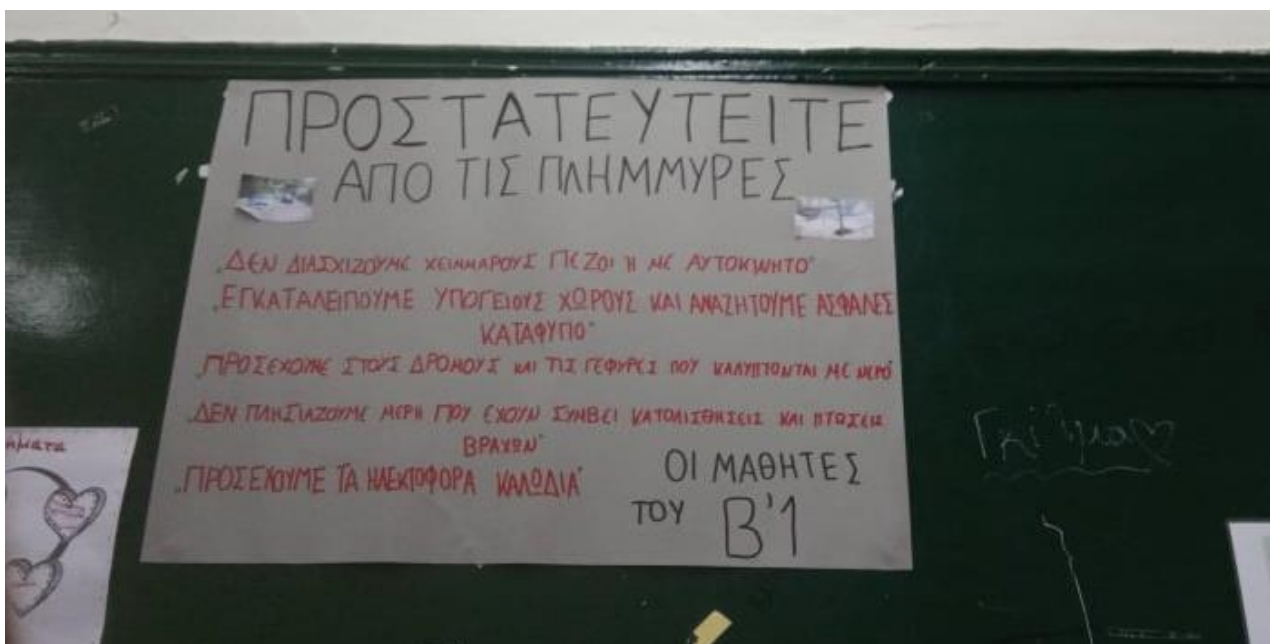 ΠΡΟΣΤΑΤΕΥΤΕΙΤΕ
ΑΠΟ ΤΙΣ ΠΛΗΜΜΥΡΕΣ
„ΔΕΝ ΔΙΑΣΧΙΖΟΥΜΕ ΧΕΙΜΜΑΡΟΥΣ ΠΕΖΟΙ Ή ΜΕ ΑΥΤΟΚΙΝΗΤΟ"
„ΕΓΚΑΤΑΛΕΙΠΟΥΜΕ ΥΠΟΓΕΙΟΥΣ ΧΩΡΟΥΣ ΚΑΙ ΑΝΑΖΗΤΟΥΜΕ ΑΣΦΑΛΕΣ
ΚΑΤΑΦΥΓΙΟ"
„ΠΡΟΣΕΧΟΥΜΕ ΣΤΟΥΣ ΔΡΟΜΟΥΣ ΚΑΙ ΤΙΣ ΓΕΦΥΡΕΣ ΠΟΥ ΚΑΛΥΠΤΟΝΤΑΙ ΜΕ ΝΕΡΟ"
„ΔΕΝ ΠΛΗΣΙΑΖΟΥΜΕ ΜΕΡΗ ΠΟΥ ΕΧΟΥΝ ΣΥΜΒΕΙ ΚΑΤΟΛΙΣΘΗΣΕΙΣ ΚΑΙ ΠΤΩΣΕΙΣ
ΒΡΑΧΩΝ"
„ΠΡΟΣΕΧΟΥΜΕ ΤΑ ΗΛΕΚΤΟΦΟΡΑ ΚΑΛΩΔΙΑ"
ΟΙ ΜΑΘΗΤΕΣ
ΤΟΥ Β'1